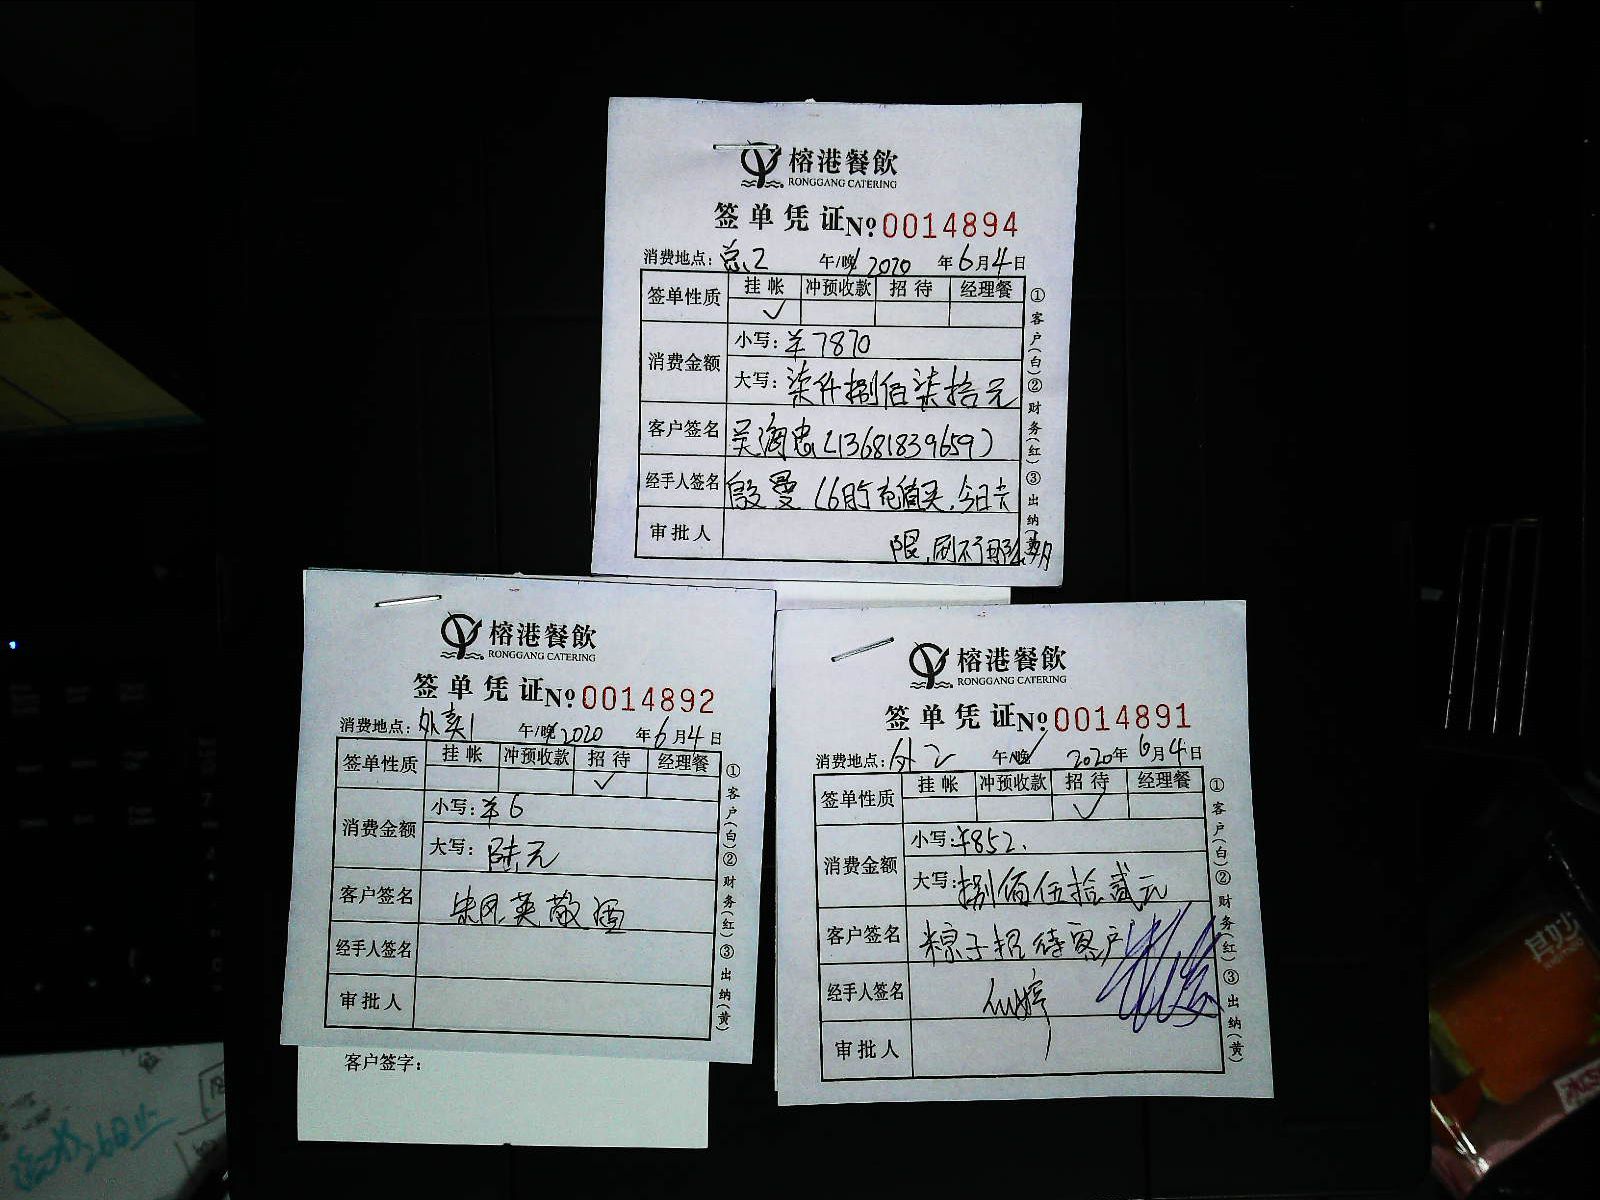 榕港餐飲
RONGGANG CATERING
签单凭证 No 0014894
消费地点：总2 午/晚 2020年6月4日
签单性质 挂帐 冲预收款 招待 经理餐
✓
消费金额 小写：¥7870
大写：柒仟捌佰柒拾元
客户签名 吴海忠（13681839659）
经手人签名 殷曼（6月 充值买，今日卡
审批人 限，刷不了那么多
①客户（白）②财务（红）③出纳（黄）
榕港餐飲
RONGGANG CATERING
签单凭证 No 0014892
消费地点：外卖1 午/晚 2020年6月4日
签单性质 挂帐 冲预收款 招待 经理餐
✓
消费金额 小写：¥6
大写：陆元
客户签名 朱凤英敬酒
经手人签名
审批人
①客户（白）②财务（红）③出纳（黄）
客户签字：
榕港餐飲
RONGGANG CATERING
签单凭证 No 0014891
消费地点：外2 午/晚 2020年6月4日
签单性质 挂帐 冲预收款 招待 经理餐
✓
消费金额 小写：¥852.
大写：捌佰伍拾贰元
客户签名 粽子招待客户
经手人签名
审批人
①客户（白）②财务（红）③出纳（黄）